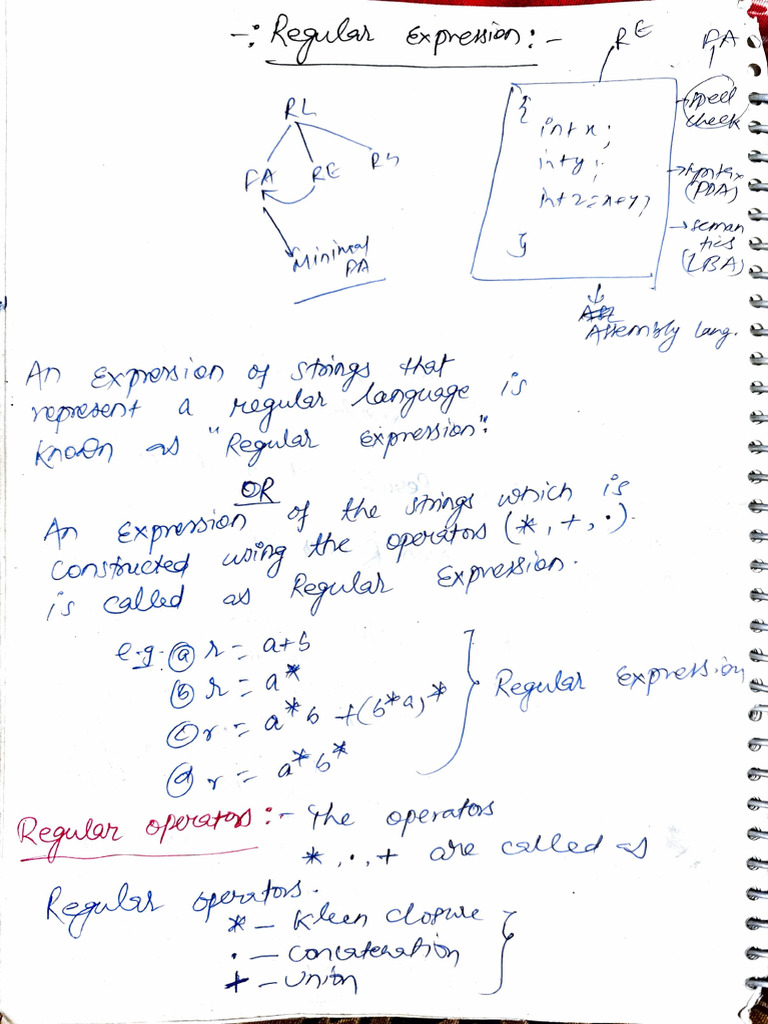 -: Regular Expression:-
RL
FA RE RG
Minimal
FA
RE FA
{
int x;
int y;
int z=x+y;
}
spell
check
syntax
(PDA)
seman
tics
(LBA)
Assembly lang.
An Expression of strings that
represent a regular language is
known as "Regular Expression".
OR
An Expression of the strings which is
constructed using the operators (*, +, ·).
is called as Regular Expression.
e.g. (a) r = a+b
(b) r = a*
(c) r = a*b + (b*a)*
(d) r = a*b*
Regular Expression
Regular operators:- The operators
*, ·, + are called as
Regular operators.
* - Kleen closure
· - Concatenation
+ - Union